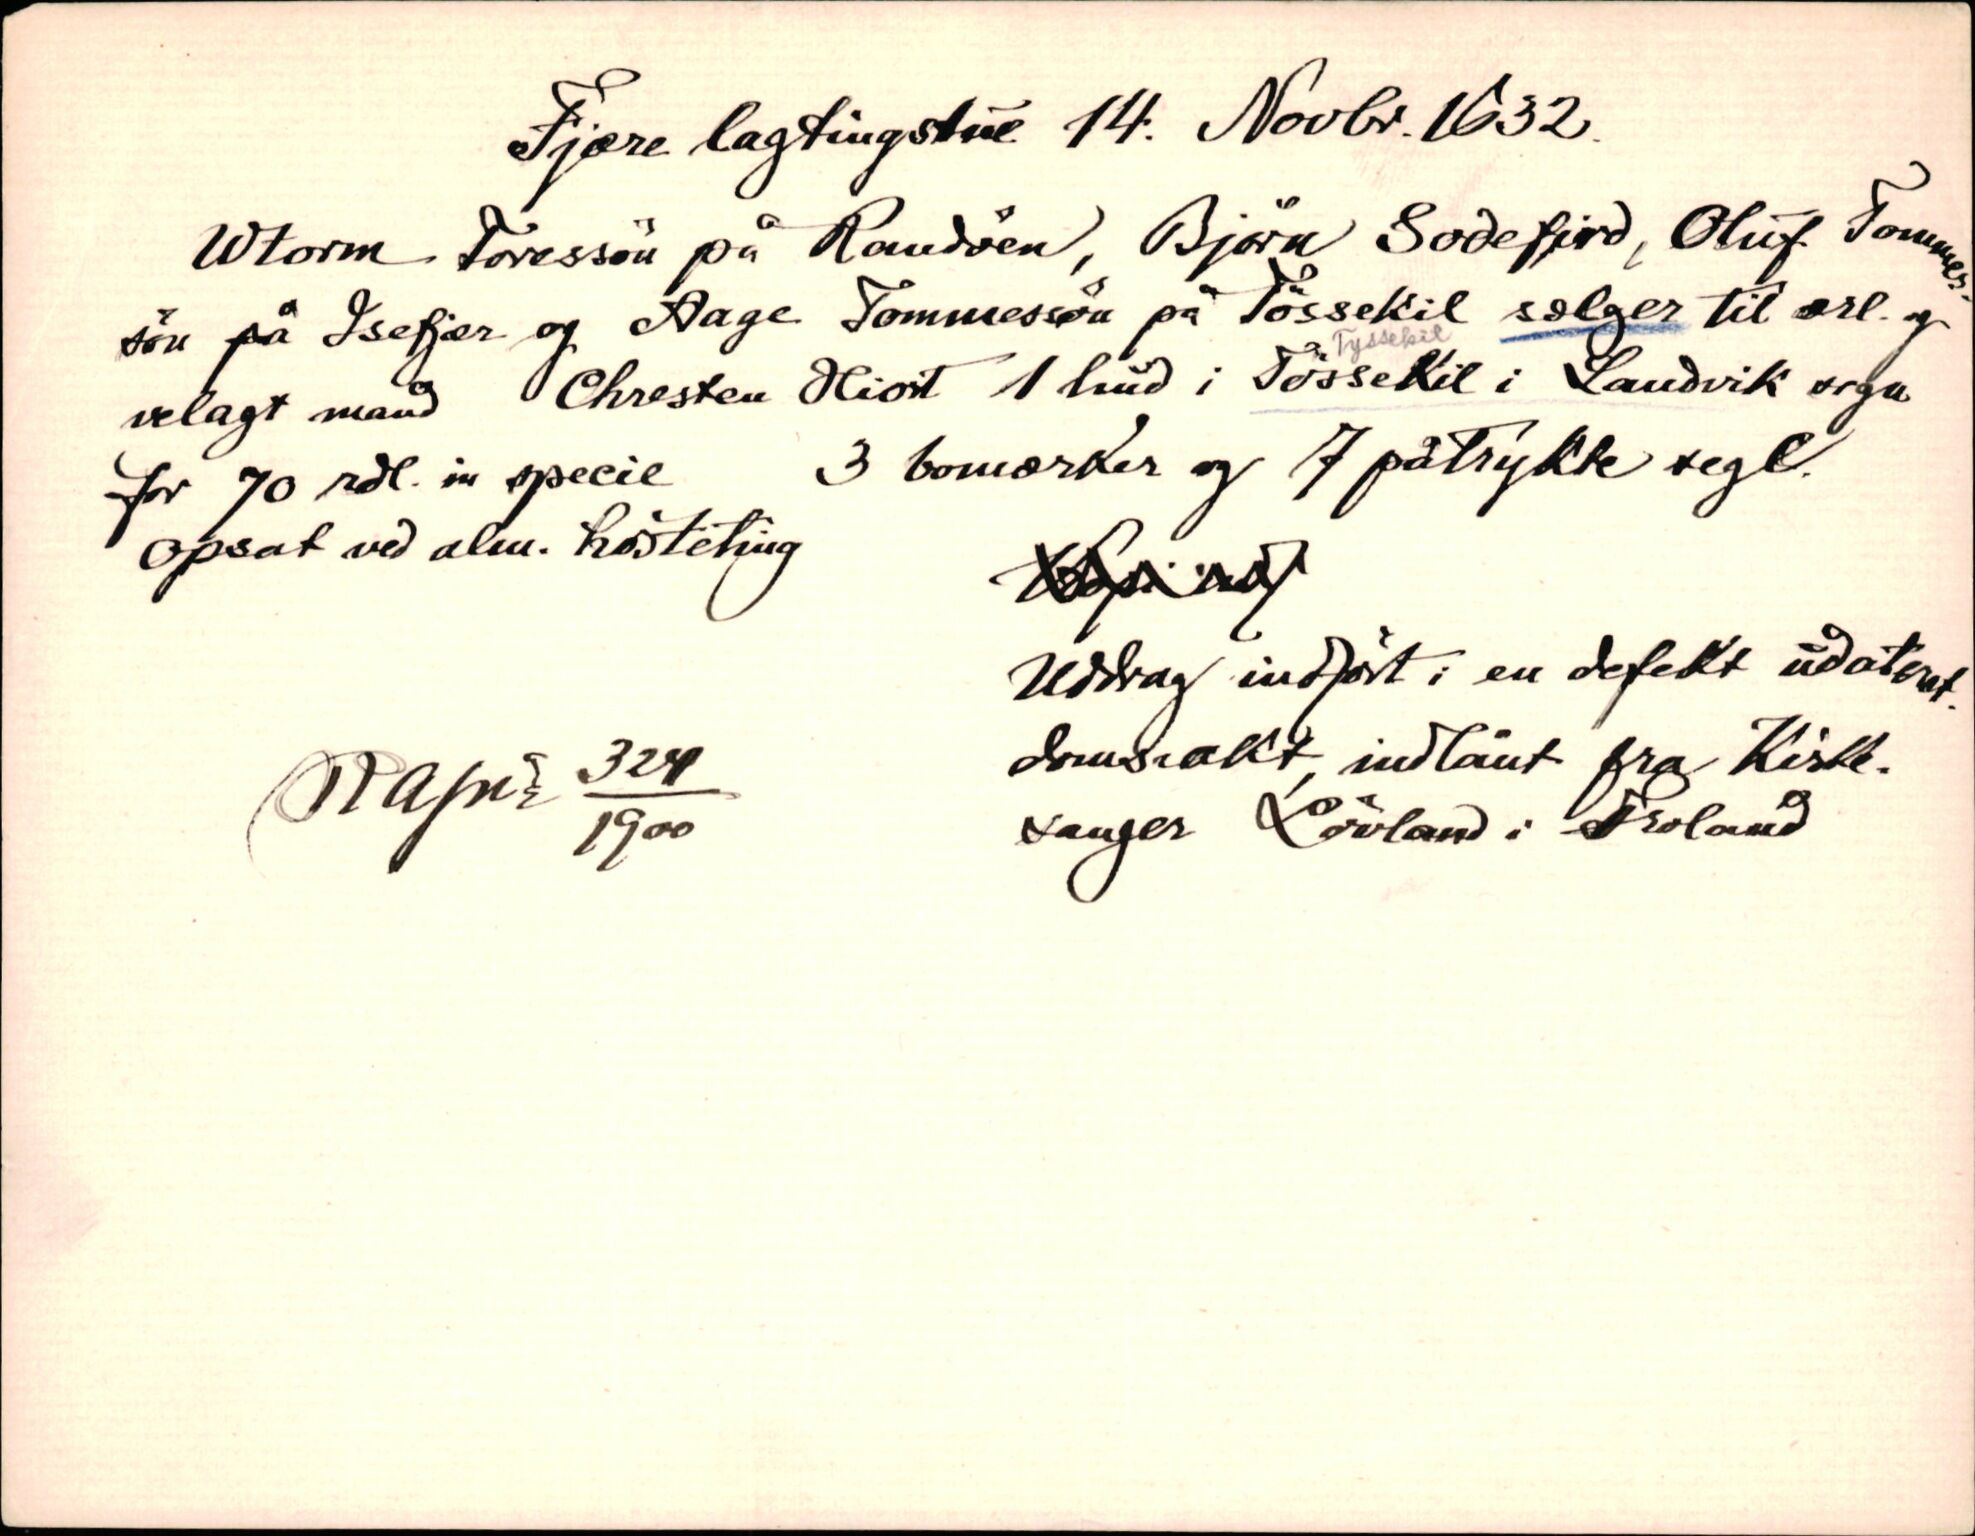 Fjære lagtingstue 14. Novbr. 1632.
Wtorm Toressön på Randöen, Björn Sodefjord, Oluf Tommes-
sön på Isefjær og Aage Tommessön på Tössekil sælger til ærl. og
Tyssekil
velagt mand Chresten Hiort 1 hud i Tössekil i Landvik sogn
for 70 rdl. in specie 3 bomærker og 7 påtrykte segl.
Opsat ved alm. høsteting
Uddrag indfört i en defekt udateret
domsakt, indlånt fra Kirke-
sanger Lövland i Froland
324
1900